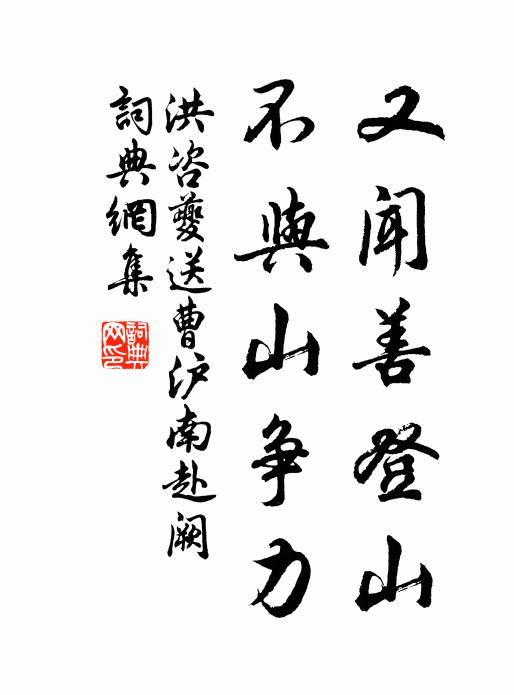 又闻善登山
不與山争力
洪咨夔送曹沪南赴阙
詞典網集
詞典
网印